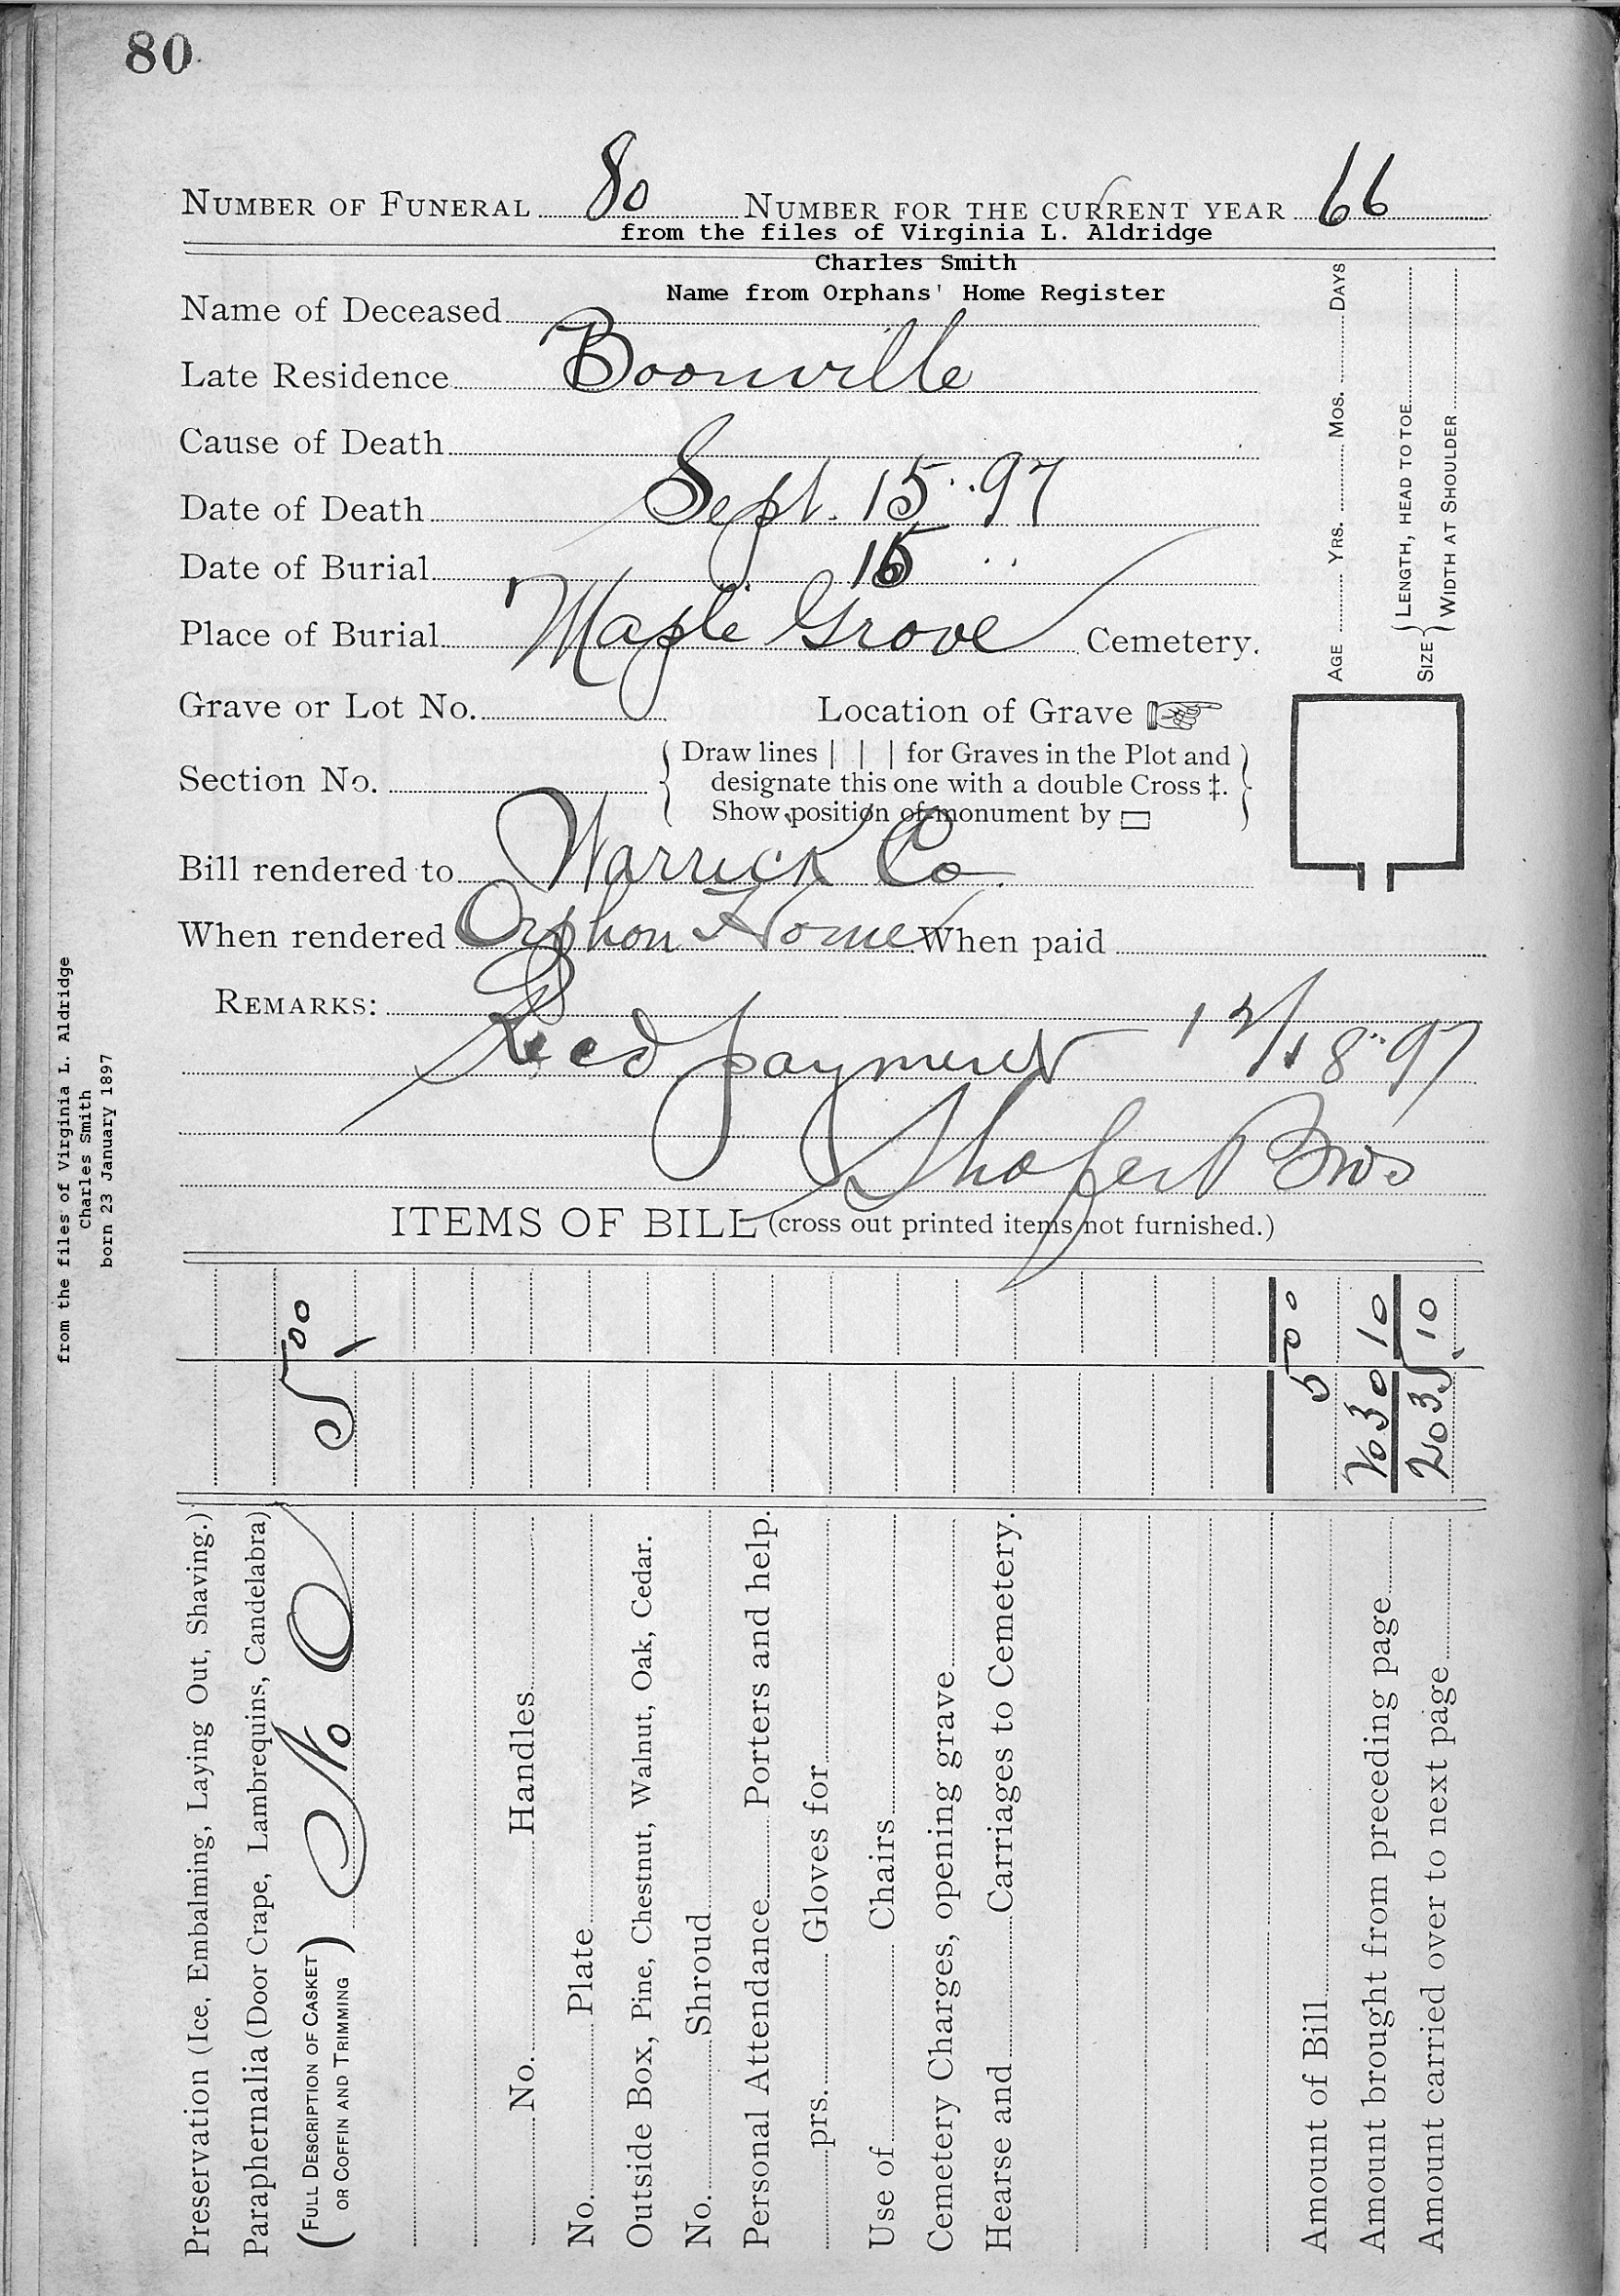 80
NUMBER OF FUNERAL 80 NUMBER FOR THE CURRENT YEAR 66
from the files of Virginia L. Aldridge
Charles Smith
Name from Orphans' Home Register
Name of Deceased
Late Residence Boonville
Cause of Death
Date of Death Sept. 15 .. 97
Date of Burial 16 ..
Place of Burial Maple Grove Cemetery.
Grave or Lot No. Location of Grave
Section No. Draw lines | | | for Graves in the Plot and
designate this one with a double Cross ‡.
Show position of monument by
Bill rendered to Warrick Co
When rendered Orphon Home When paid
REMARKS:
Recd payment 12/18 .. 97
Shafer Bros
AGE YRS. MOS. DAYS
SIZE { LENGTH, HEAD TO TOE
WIDTH AT SHOULDER
from the files of Virginia L. Aldridge
Charles Smith
born 23 January 1897
ITEMS OF BILL (cross out printed items not furnished.)
Preservation (Ice, Embalming, Laying Out, Shaving.)
Paraphernalia (Door Crape, Lambrequins, Candelabra)
(FULL DESCRIPTION OF CASKET
OR COFFIN AND TRIMMING) No 0 5 00
No. Handles
No. Plate
Outside Box, Pine, Chestnut, Walnut, Oak, Cedar.
No. Shroud
Personal Attendance Porters and help.
prs. Gloves for
Use of Chairs
Cemetery Charges, opening grave
Hearse and Carriages to Cemetery.
Amount of Bill 5 00
Amount brought from preceding page 2030 10
Amount carried over to next page 2035 10